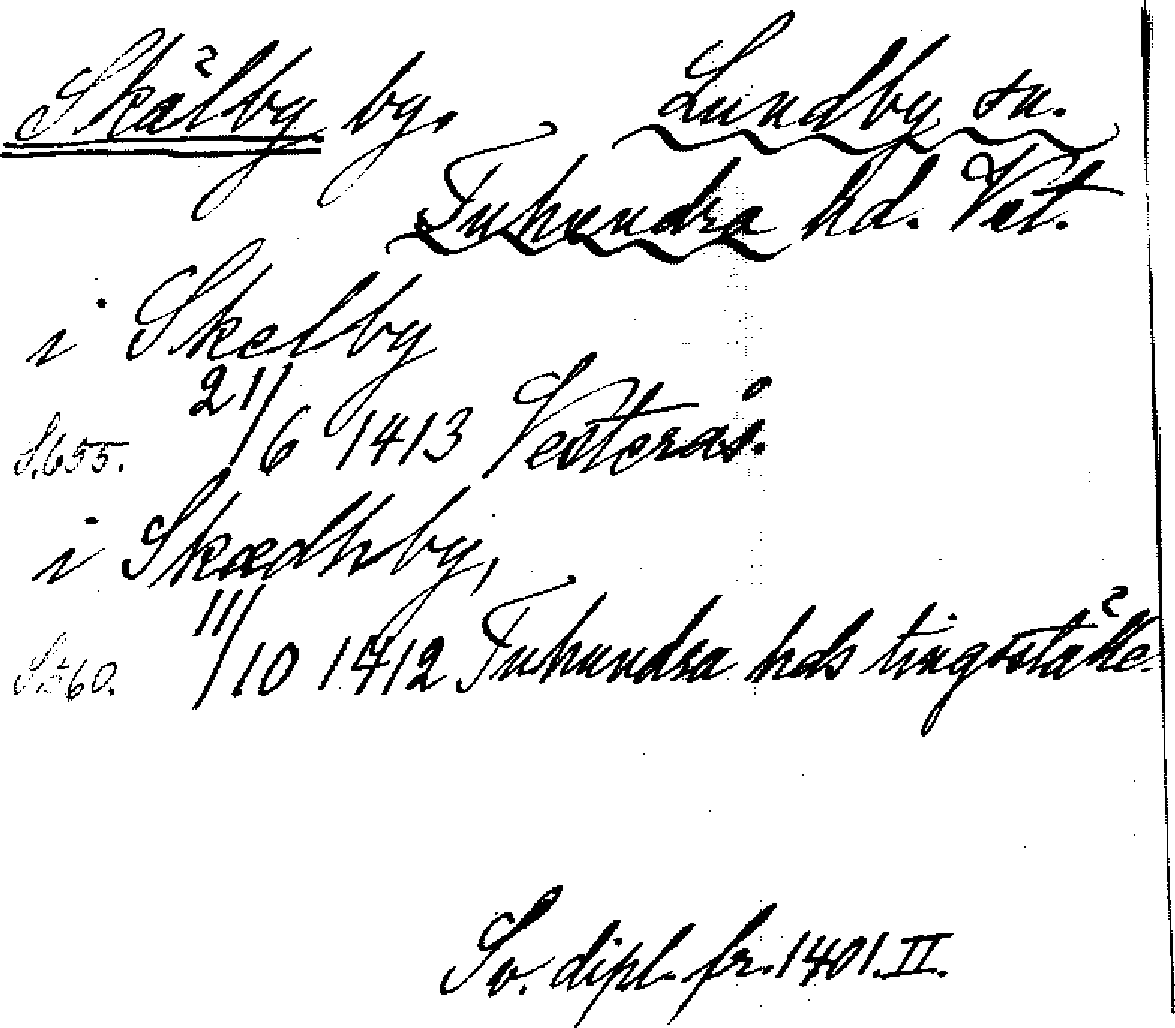 Skälby by. Lundby sn.
Tuhundra hd. Vst.
i Skelby
S. 655. 21/6 1413 Vesterås.
i Skædhby,
S. 560. 11/10 1412 Tuhundra hds tingsställe
Sv. dipl. fr. 1401. II.